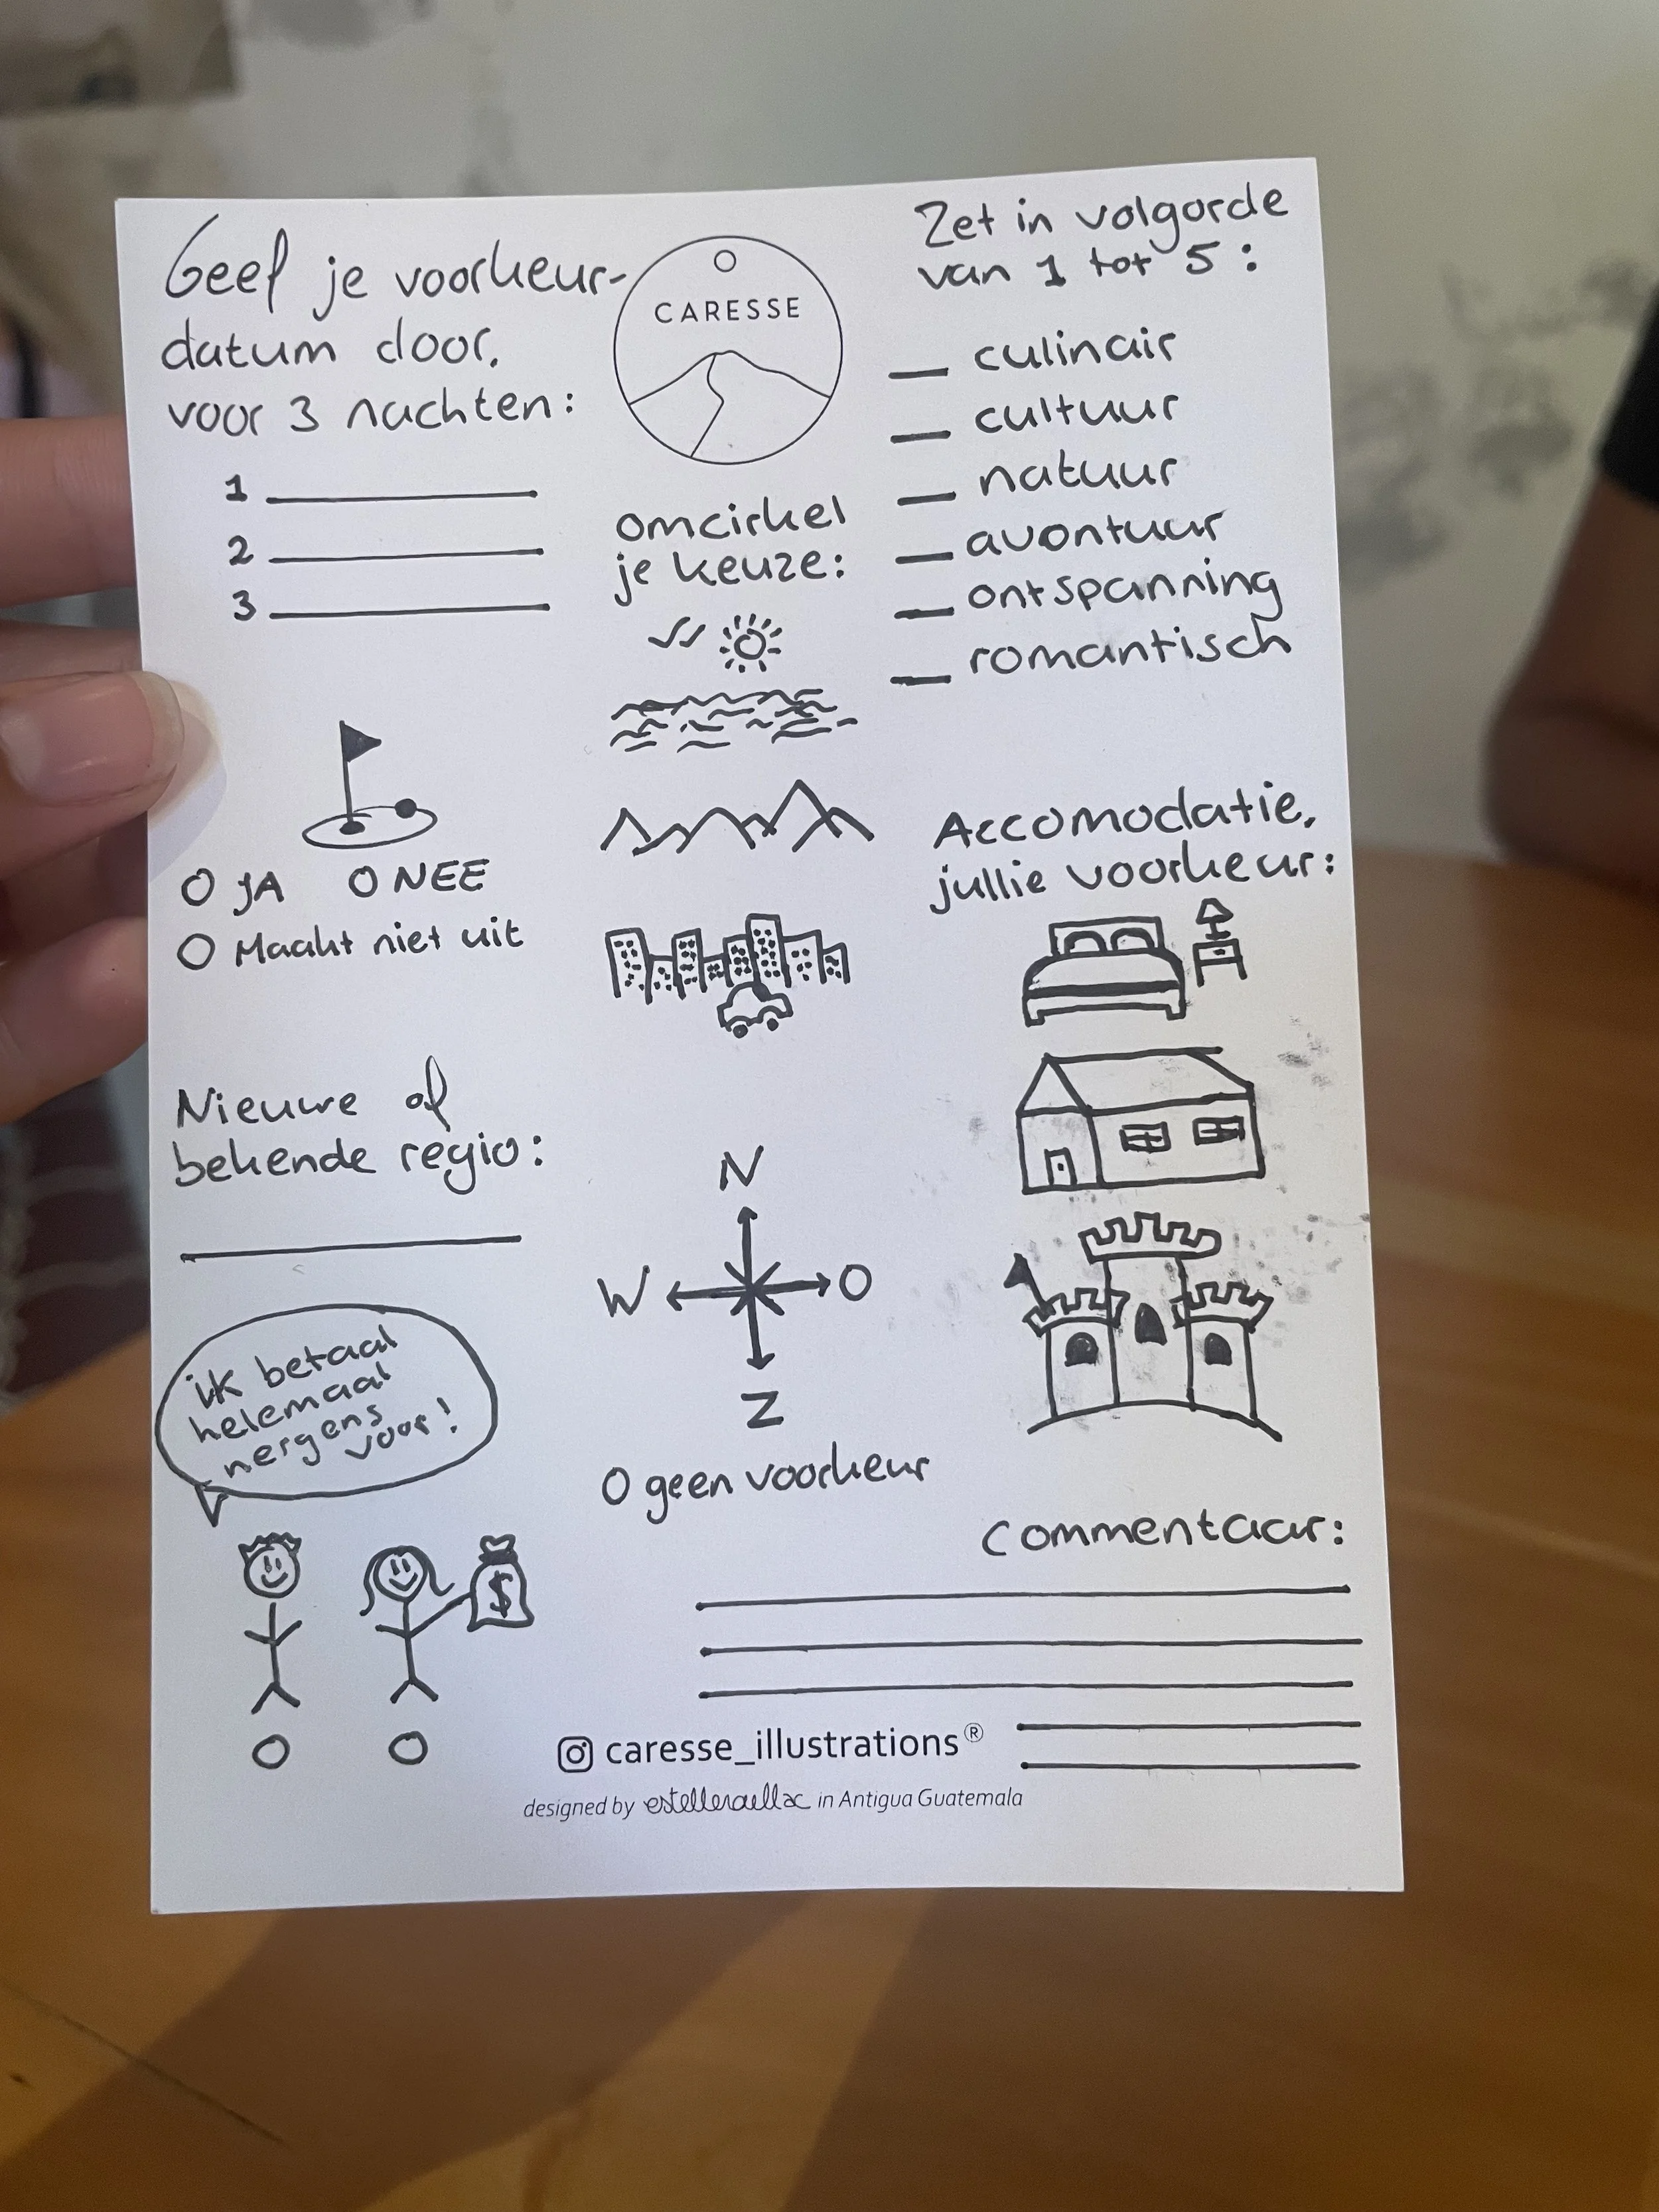 Geef je voorkeur-
datum door,
voor 3 nachten:
1
2
3
JA
NEE
Maakt niet uit
Nieuwe of
bekende regio:
ik betaal
helemaal
nergens
voor!
$
CARESSE
omcirkel
je keuze:
N
W
O
Z
O geen voorkeur
Zet in volgorde
van 1 tot 5:
culinair
cultuur
natuur
avontuur
ontspanning
romantisch
Accomodatie,
jullie voorkeur:
commentaar:
caresse_illustrations®
designed by estelleraellac in Antigua Guatemala